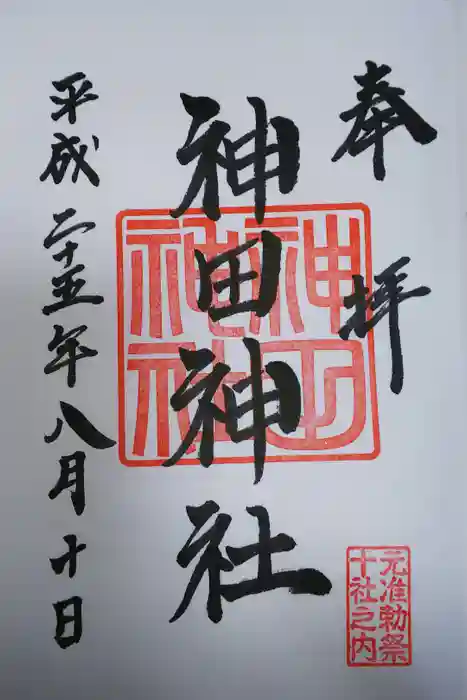 奉拝
神田神社
平成二十五年八月十日
神田神社
元准勅祭
十社之内